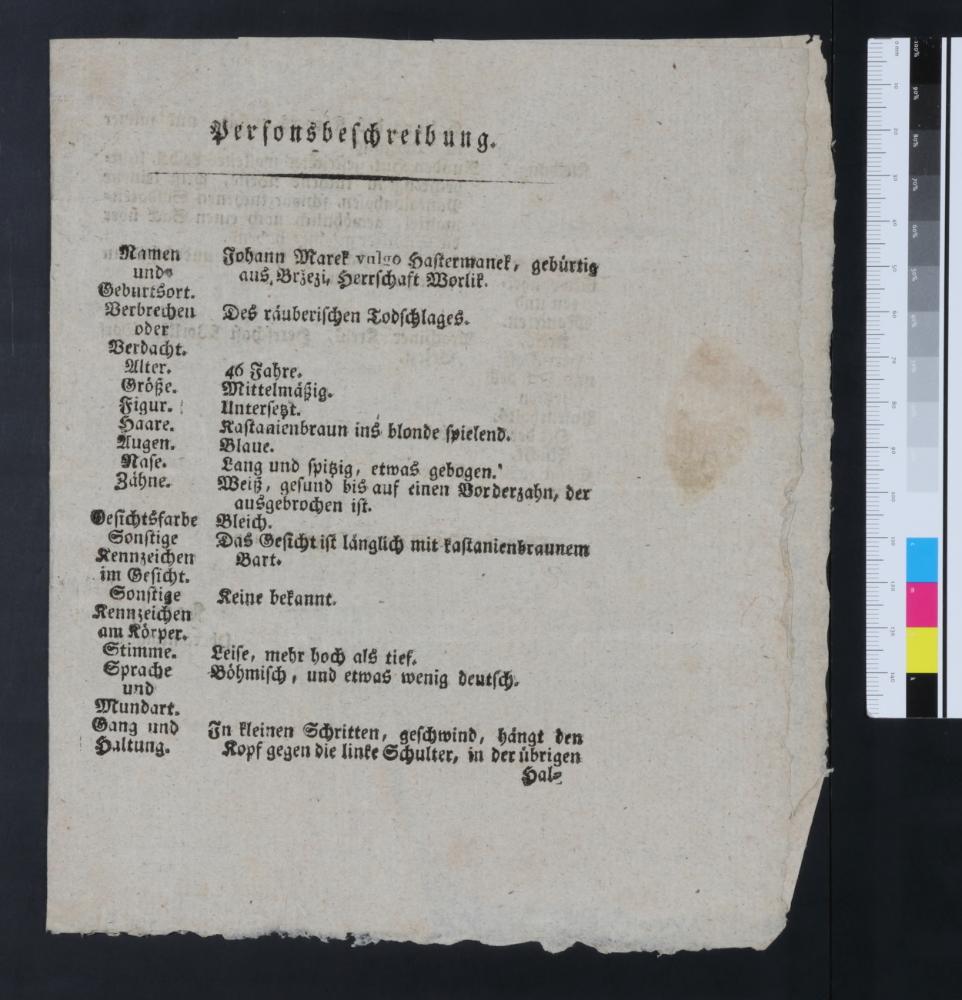 Personsbeschreibung.
Namen Johann Marek vulgo Hastermanek, gebürtig
und aus Bržezi, Herrschaft Worlik.
Geburtsort.
Verbrechen Des räuberischen Todschlages.
oder
Verdacht.
Alter. 46 Jahre.
Größe. Mittelmäßig.
Figur. Untersetzt.
Haare. Kastaaienbraun ins blonde spielend.
Augen. Blaue.
Nase. Lang und spitzig, etwas gebogen.
Zähne. Weiß, gesund bis auf einen Vorderzahn, der
ausgebrochen ist.
Gesichtsfarbe Bleich.
Sonstige Das Gesicht ist länglich mit kastanienbraunem
Kennzeichen Bart.
im Gesicht.
Sonstige Keine bekannt.
Kennzeichen
am Körper.
Stimme. Leise, mehr hoch als tief.
Sprache Böhmisch, und etwas wenig deutsch.
und
Mundart.
Gang und In kleinen Schritten, geschwind, hängt den
Haltung. Kopf gegen die linke Schulter, in der übrigen
Hal-